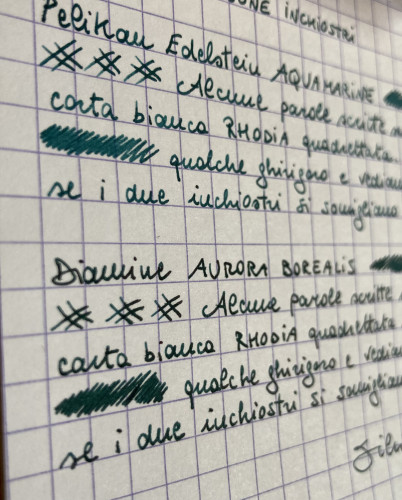 INCHIOSTRI
Pelikan Edelstein AQUAMARINE
Alcune parole scritte
carta bianca RHODIA quadrettata.
qualche ghirigoro e vediamo
se i due inchiostri si somigliano
Diamine AURORA BOREALIS
Alcune parole scritte
carta bianca RHODIA quadrettata
qualche ghirigoro e vediamo
se i due inchiostri si somigliano